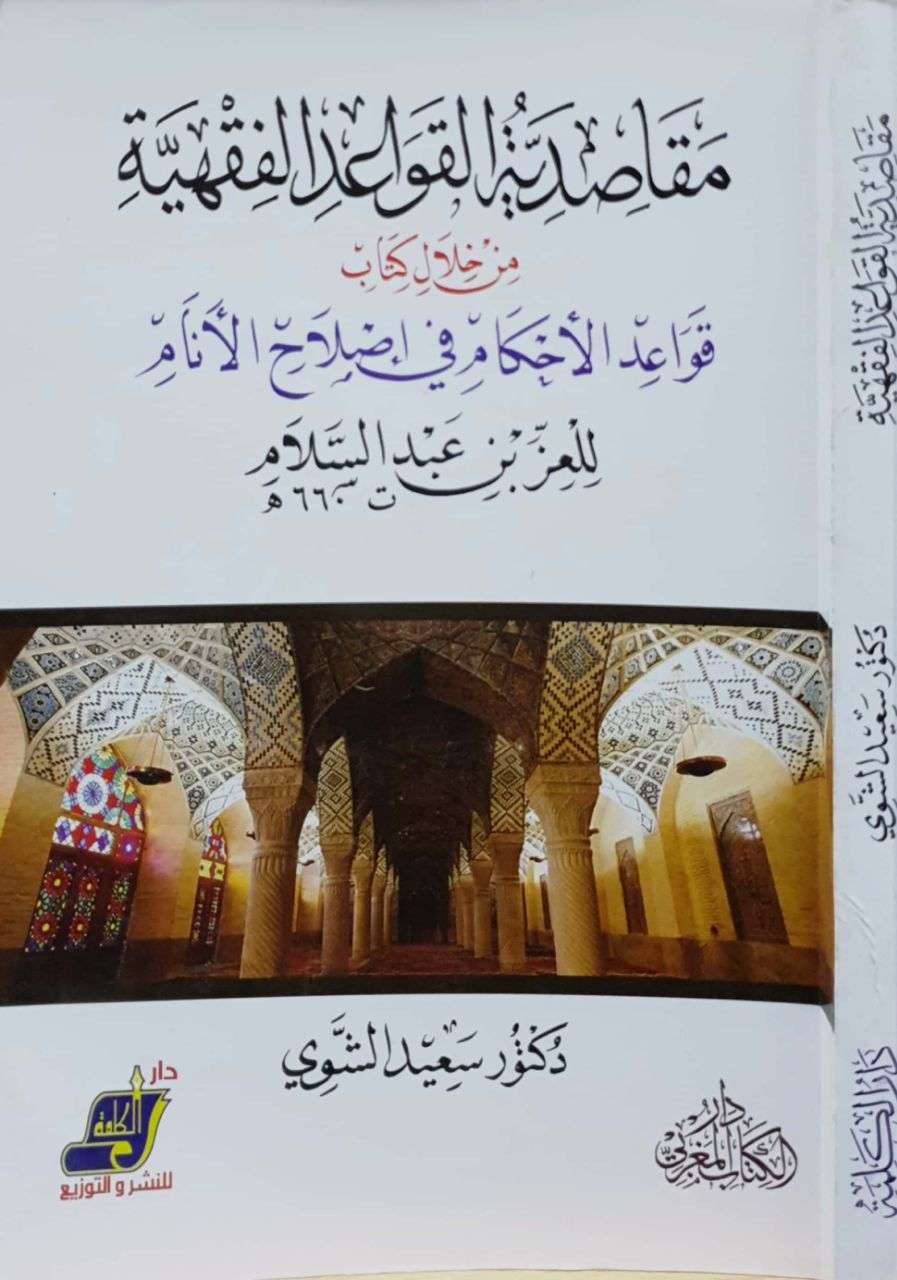 مَقَاصِدِيَّةُ القَوَاعِدِ الفِقْهِيَّةِ
مِنْ خِلَالِ كِتَابِ
قَوَاعِدِ الأَحْكَامِ فِي إِصْلَاحِ الأَنَامِ
لِلْعِزِّ بْنِ عَبْدِ السَّلَامِ
ت ٦٦٠ هـ
دُكْتُور سَعِيد الشَّوِي
دار
الكلمة
للنشر و التوزيع
دَارُ
الكِتَابِ المَغْرِبِيِّ
مَقَاصِدِيَّةُ القَوَاعِدِ الفِقْهِيَّةِ
دُكْتُور سَعِيد الشَّوِي
دَارُ الكَلِمَةِ